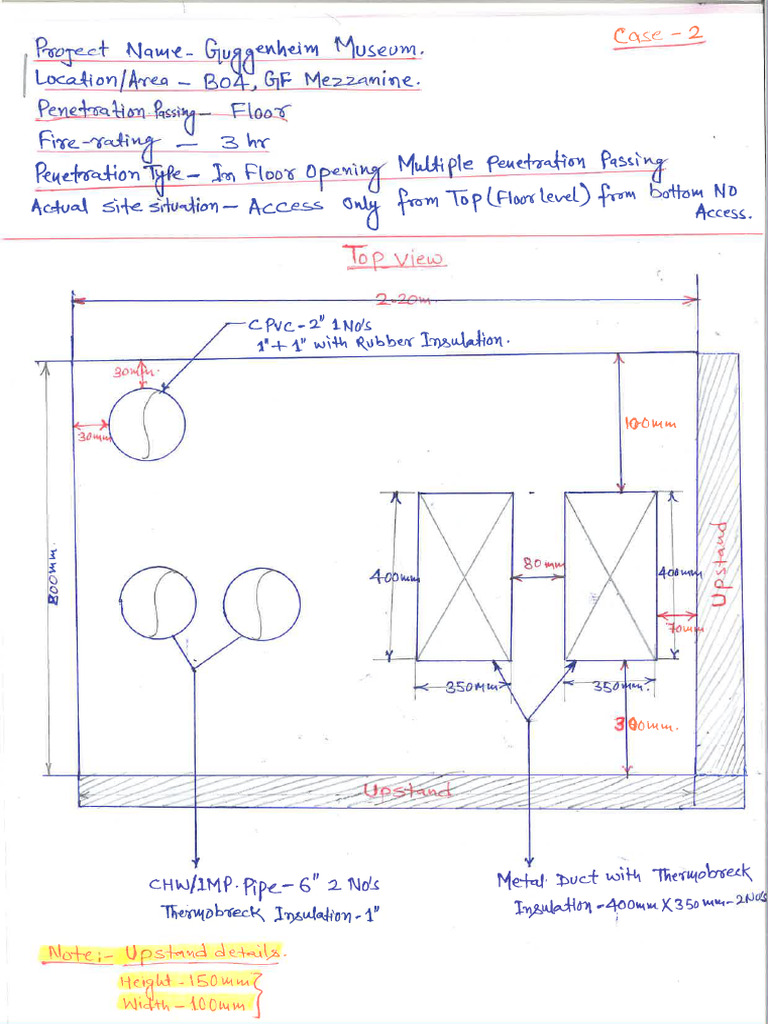 Case - 2
Project Name - Guggenheim Museum.
Location/Area - B04, GF Mezzanine.
Penetration Passing - Floor
Fire-rating - 3 hr
Penetration Type - In Floor Opening Multiple Penetration Passing
Actual site situation - Access Only from Top (Floor level) from bottom NO
Access.
Top view
2.20m
CPVC - 2" 1 No's
1" + 1" with Rubber Insulation.
30mm.
30mm
100mm
800mm.
400mm
80mm
400mm
Upstand
70mm
350mm
350mm.
300mm.
Upstand
CHW/IMP. Pipe - 6" 2 No's
Thermobreck Insulation - 1"
Metal Duct with Thermobreck
Insulation - 400mm X 350mm - 2No's
Note:- Upstand details.
Height - 150mm
Width - 100mm